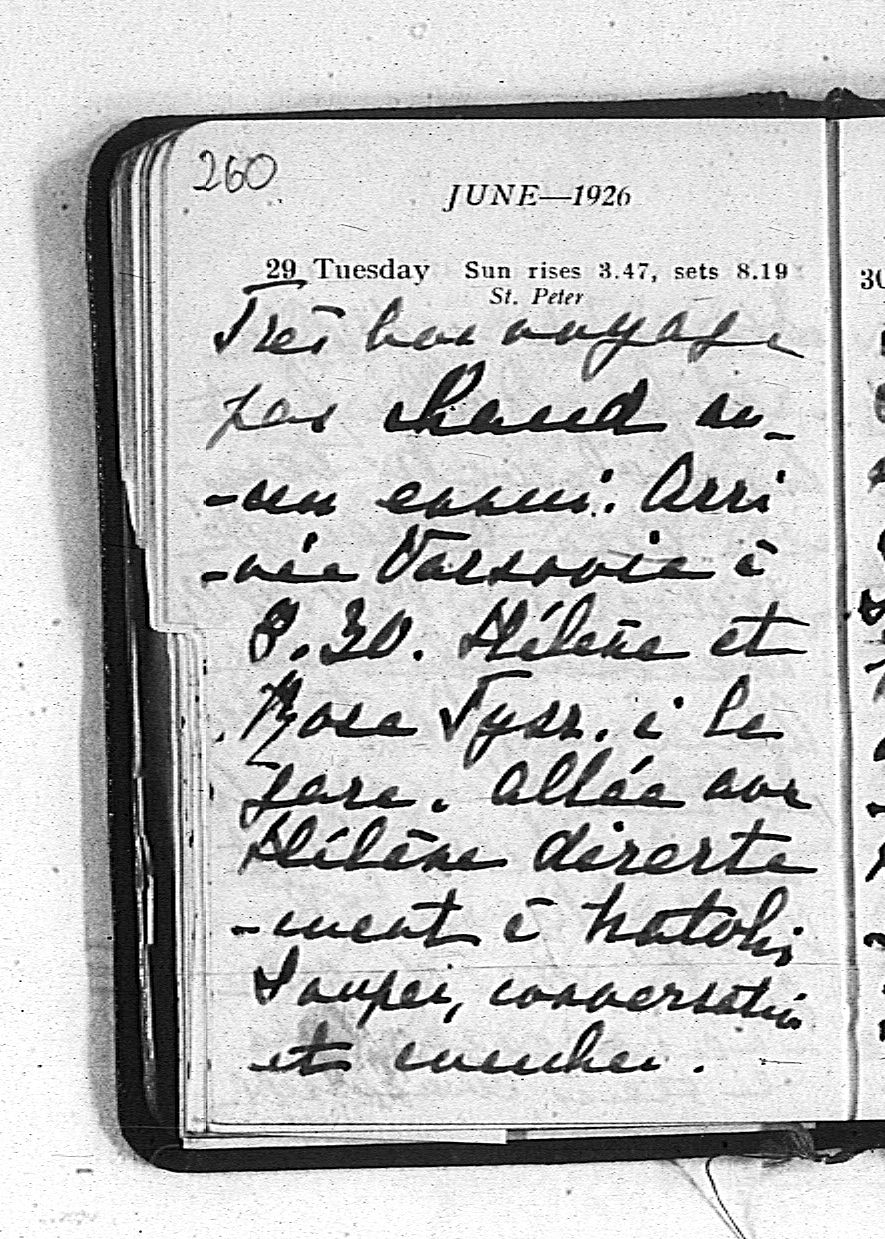 260
JUNE—1926
29 Tuesday Sun rises 3.47, sets 8.19
St. Peter
Très bon voyage
pas chaud au_
-cun ennui. Arri
-vée Varsovie à
8.30. Hélène et
Rose Tysz. à la
gare. Allée avec
Hélène directe
-ment à Natolin
Souper, conversation
et coucher.
30